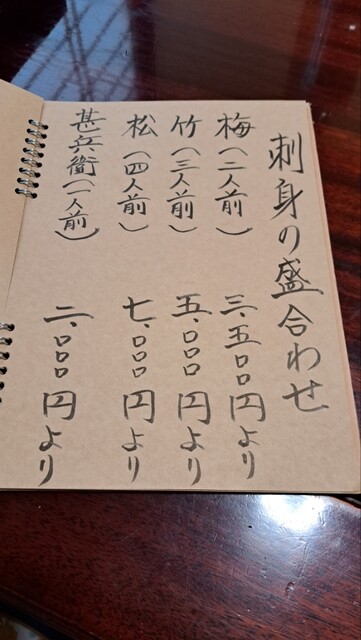 刺身の盛合わせ
梅（二人前） 三、五〇〇円より
竹（三人前） 五、〇〇〇円より
松（四人前） 七、〇〇〇円より
甚兵衛（一人前） 二、〇〇〇円より